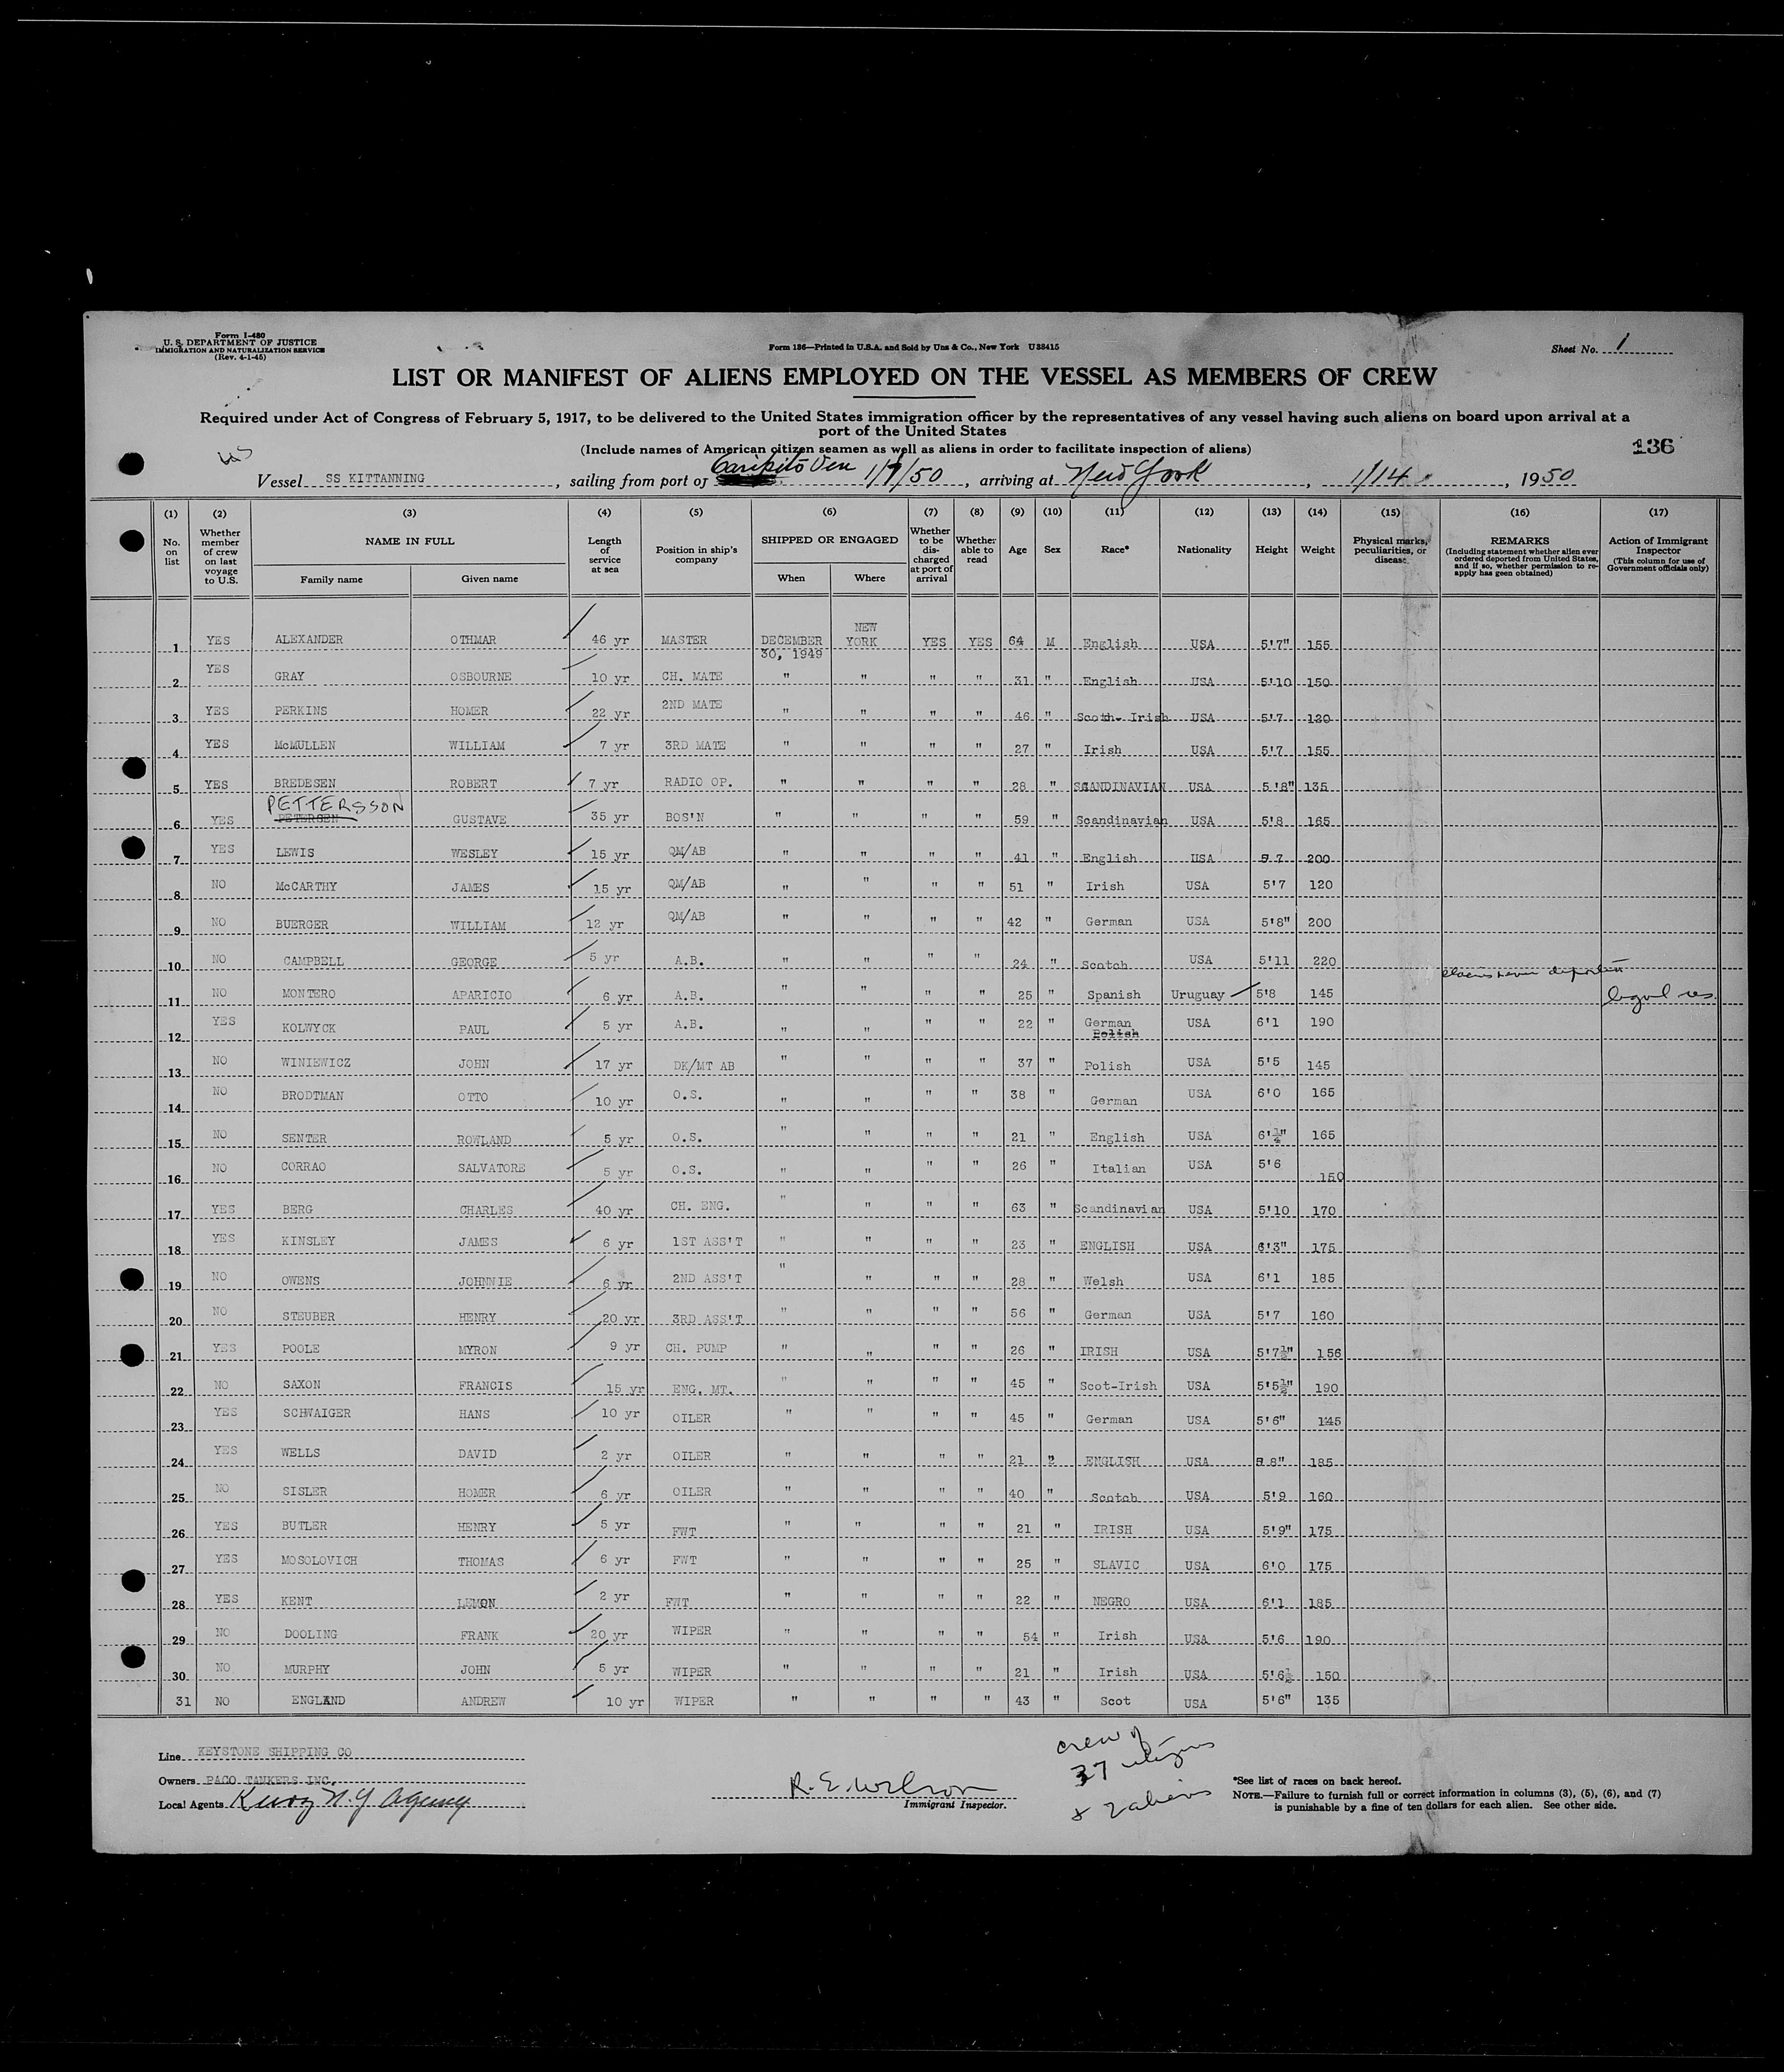 Form I-480
U. S. DEPARTMENT OF JUSTICE
IMMIGRATION AND NATURALIZATION SERVICE
(Rev. 4-1-45)
Form 136—Printed in U.S.A. and Sold by Unz & Co., New York U38415
Sheet No. 1
LIST OR MANIFEST OF ALIENS EMPLOYED ON THE VESSEL AS MEMBERS OF CREW
Required under Act of Congress of February 5, 1917, to be delivered to the United States immigration officer by the representatives of any vessel having such aliens on board upon arrival at a
port of the United States
(Include names of American citizen seamen as well as aliens in order to facilitate inspection of aliens)
136
Vessel SS KITTANNING, sailing from port of Caripito Ven 1/7/50, arriving at New York, 1/14, 1950
(1) (2) (3) (4) (5) (6) (7) (8) (9) (10) (11) (12) (13) (14) (15) (16) (17)
No. on list Whether member of crew on last voyage to U.S. NAME IN FULL Family name Given name Length of service at sea Position in ship's company SHIPPED OR ENGAGED When Where Whether to be discharged at port of arrival Whether able to read Age Sex Race* Nationality Height Weight Physical marks, peculiarities, or disease REMARKS (Including statement whether alien ever ordered deported from United States, and if so, whether permission to reapply has geen obtained) Action of Immigrant Inspector (This column for use of Government officials only)
1 YES ALEXANDER OTHMAR 46 yr MASTER DECEMBER 30, 1949 NEW YORK YES YES 64 M English USA 5'7" 155
2 YES GRAY OSBOURNE 10 yr CH. MATE " " " " 31 " English USA 5'10 150
3 YES PERKINS HOMER 22 yr 2ND MATE " " " " 46 " Scoth- Irish USA 5'7 120
4 YES McMULLEN WILLIAM 7 yr 3RD MATE " " " " 27 " Irish USA 5'7 155
5 YES BREDESEN ROBERT 7 yr RADIO OP. " " " " 28 " SCANDINAVIAN USA 5'8" 135
6 YES PETTERSSON PETERSEN GUSTAVE 35 yr BOS'N " " " " 59 " Scandinavian USA 5'8 165
7 YES LEWIS WESLEY 15 yr QM/AB " " " " 41 " English USA 5 7 200
8 NO McCARTHY JAMES 15 yr QM/AB " " " " 51 " Irish USA 5'7 120
9 NO BUERGER WILLIAM 12 yr QM/AB " " " " 42 " German USA 5'8" 200
10 NO CAMPBELL GEORGE 5 yr A.B. " " " " 24 " Scotch USA 5'11 220
11 NO MONTERO APARICIO 6 yr A.B. " " " " 25 " Spanish Uruguay 5'8 145 legal res.
12 YES KOLWYCK PAUL 5 yr A.B. " " " " 22 " German Polish USA 6'1 190
13 NO WINIEWICZ JOHN 17 yr DK/MT AB " " " " 37 " Polish USA 5'5 145
14 NO BRODTMAN OTTO 10 yr O.S. " " " " 38 " German USA 6'0 165
15 NO SENTER ROWLAND 5 yr O.S. " " " " 21 " English USA 6'¼" 165
16 NO CORRAO SALVATORE 5 yr O.S. " " " " 26 " Italian USA 5'6 150
17 YES BERG CHARLES 40 yr CH. ENG. " " " " 63 " Scandinavian USA 5'10 170
18 YES KINSLEY JAMES 6 yr 1ST ASS'T " " " " 23 " ENGLISH USA 6'3" 175
19 NO OWENS JOHNNIE 6 yr 2ND ASS'T " " " " 28 " Welsh USA 6'1 185
20 NO STEUBER HENRY 20 yr 3RD ASS'T " " " " 56 " German USA 5'7 160
21 YES POOLE MYRON 9 yr CH. PUMP " " " " 26 " IRISH USA 5'7½" 156
22 NO SAXON FRANCIS 15 yr ENG. MT. " " " " 45 " Scot-Irish USA 5'5½" 190
23 YES SCHWAIGER HANS 10 yr OILER " " " " 45 " German USA 5'6" 145
24 YES WELLS DAVID 2 yr OILER " " " " 21 " ENGLISH USA 5 8" 185
25 NO SISLER HOMER 6 yr OILER " " " " 40 " Scotch USA 5'9 160
26 YES BUTLER HENRY 5 yr FWT " " " " 21 " IRISH USA 5'9" 175
27 YES MOSOLOVICH THOMAS 6 yr FWT " " " " 25 " SLAVIC USA 6'0 175
28 YES KENT LEMON 2 yr FWT " " " " 22 " NEGRO USA 6'1 185
29 NO DOOLING FRANK 20 yr WIPER " " " " 54 " Irish USA 5'6 190
30 NO MURPHY JOHN 5 yr WIPER " " " " 21 " Irish USA 5'6½ 150
31 NO ENGLAND ANDREW 10 yr WIPER " " " " 43 " Scot USA 5'6" 135
Line KEYSTONE SHIPPING CO
Owners PACO TANKERS INC.
Local Agents N.Y Agency
R. E. Wilson
Immigrant Inspector.
crew of
37 citizens
& 2 aliens
*See list of races on back hereof.
NOTE.—Failure to furnish full or correct information in columns (3), (5), (6), and (7)
is punishable by a fine of ten dollars for each alien. See other side.